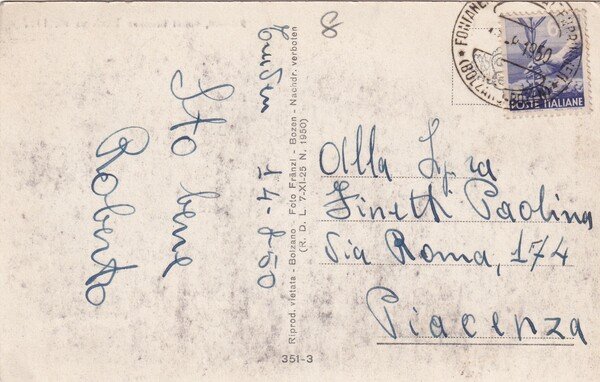 8
14-8-50
Sto bene
Roberto
Riprod. vietata - Bolzano - Foto Fränzl - Bozen - Nachdr. verboten
(R. D. L. 7-XI-25 N. 1950)
351-3
1950
POSTE ITALIANE
Alla Sig.ra
Zinetti Paolina
Via Roma, 174
Piacenza